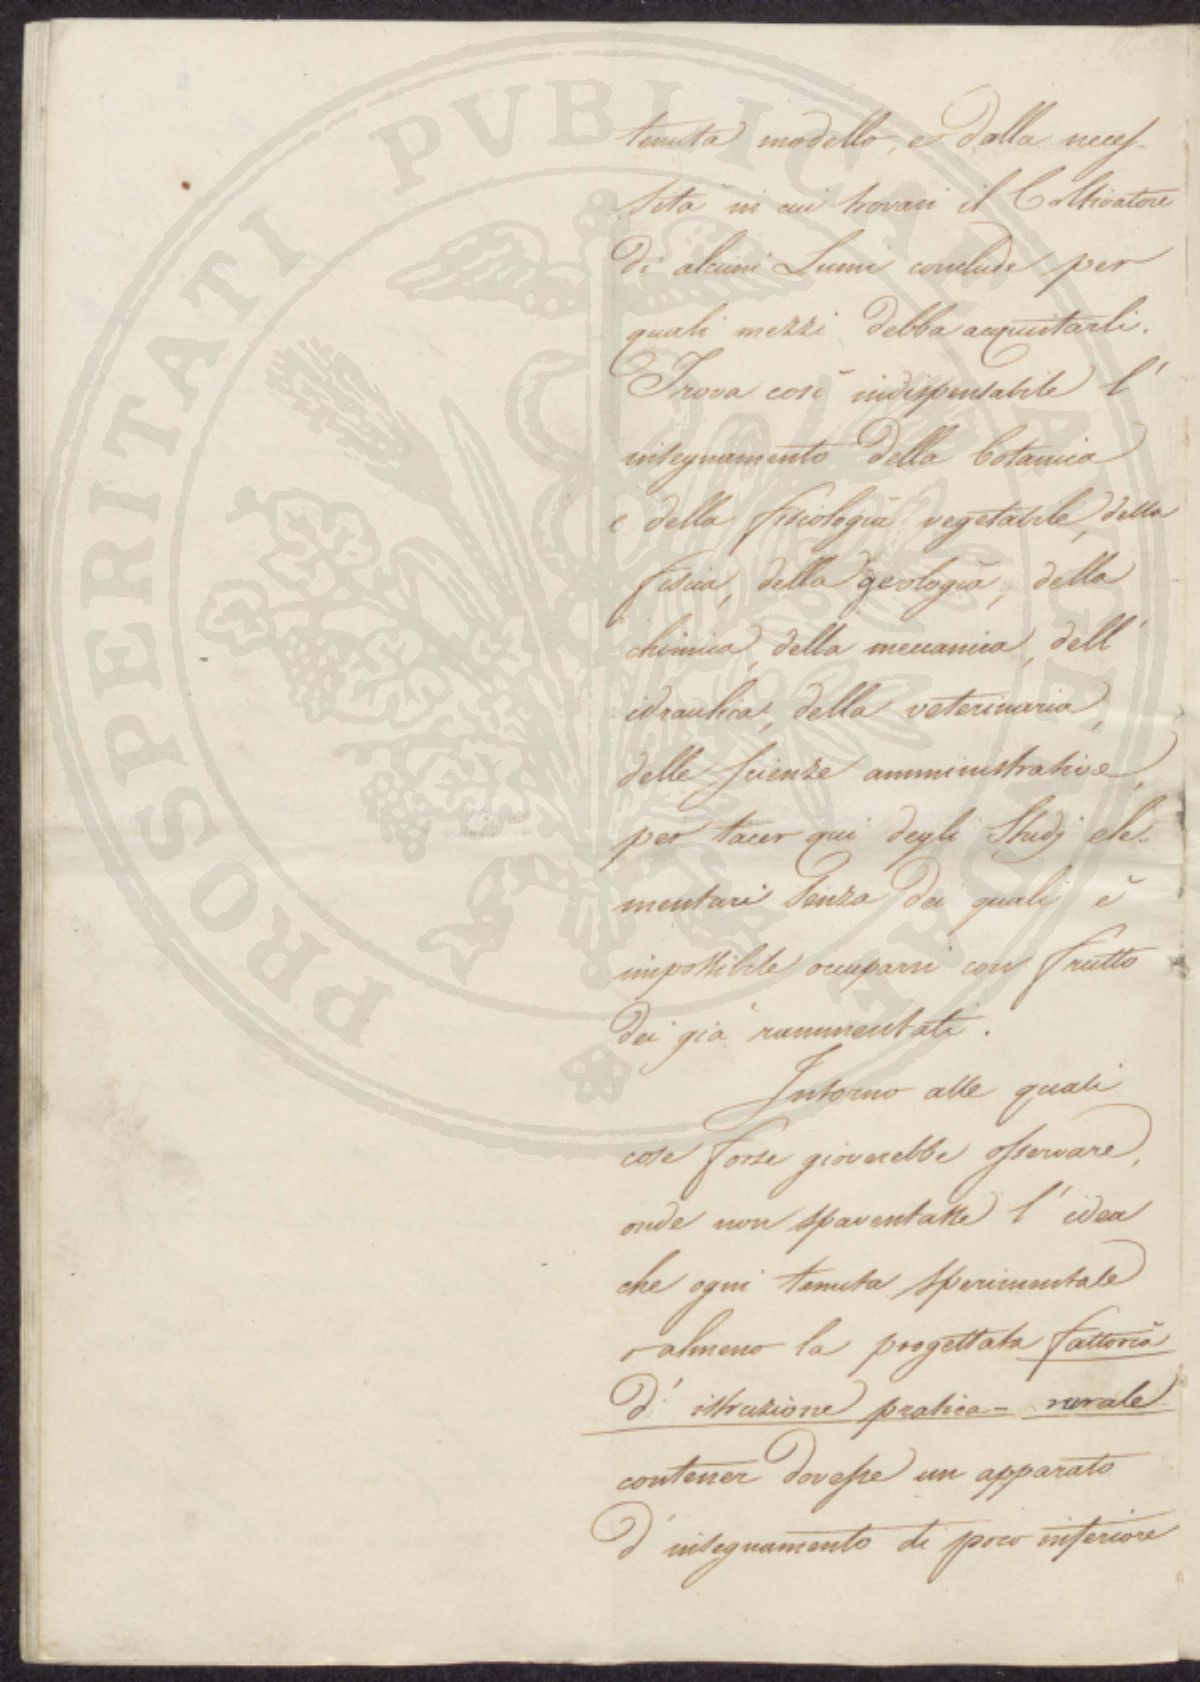 tenuta modello, e dalla neces-
sità in cui trovasi il Coltivatore
di alcuni Lumi conclude per
quali mezzi debba acquistarli.
Trova così indispensabile l'
insegnamento della botanica
e della fisiologia vegetabile, della
fisica, della geologia, della
chimica, della meccanica, dell'
idraulica, della veterinaria,
delle scienze amministrative,
per tacer qui degli Studj ele-
mentari senza dei quali è
impossibile occuparsi con frutto
dei già rammentati.
Intorno alle quali
cose forse gioverebbe osservare,
onde non spaventasse l'idea
che ogni tenuta sperimentale
o almeno la progettata fattoria
d'istruzione pratica-rurale
contener dovesse un apparato
d'insegnamento di poco inferiore
PROSPERITATI PVBLICAE AVGENDAE